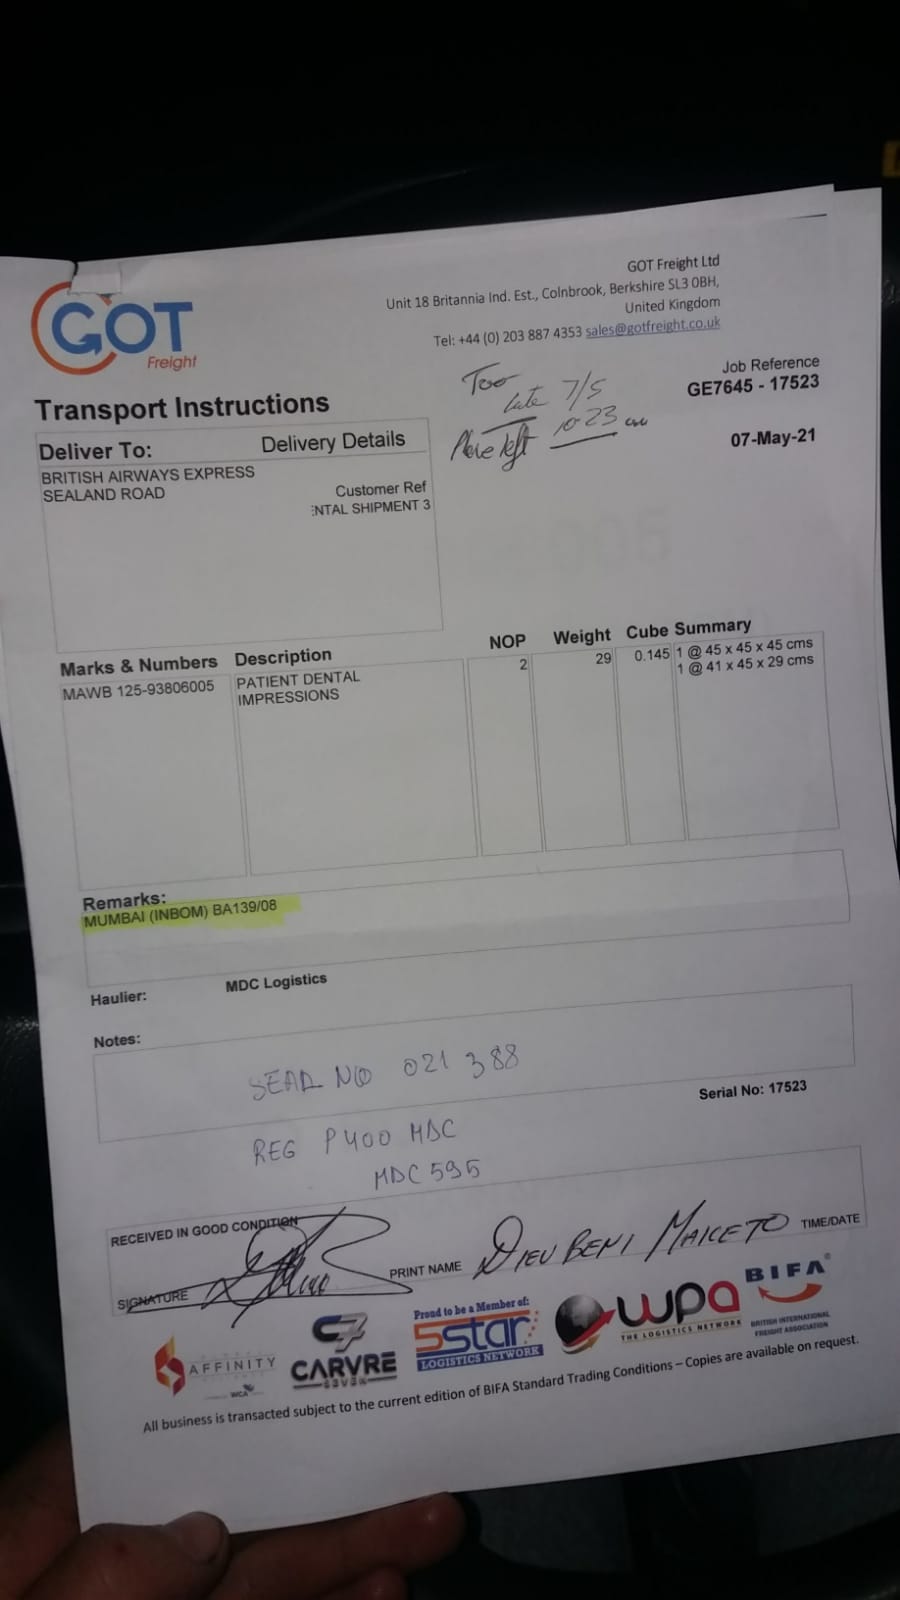 GOT
Freight
GOT Freight Ltd
Unit 18 Britannia Ind. Est., Colnbrook, Berkshire SL3 0BH,
United Kingdom
Tel: +44 (0) 203 887 4353 sales@gotfreight.co.uk
Transport Instructions
Too
late 7/5
left 10 23
Job Reference
GE7645 - 17523
07-May-21
Deliver To:
Delivery Details
BRITISH AIRWAYS EXPRESS
SEALAND ROAD
Customer Ref
ENTAL SHIPMENT 3
Marks & Numbers Description NOP Weight Cube Summary
MAWB 125-93806005 PATIENT DENTAL 2 29 0.145 1 @ 45 x 45 x 45 cms
IMPRESSIONS 1 @ 41 x 45 x 29 cms
Remarks:
MUMBAI (INBOM) BA139/08
Haulier: MDC Logistics
Notes:
SEAL NO 021 388
Serial No: 17523
REG P400 MDC
MDC 595
RECEIVED IN GOOD CONDITION
SIGNATURE
PRINT NAME DIEU BENI MAKETO TIME/DATE
AFFINITY
WCA
C7
CARVRE
SEVEN
Proud to be a Member of:
5star
LOGISTICS NETWORK
wpa
THE LOGISTICS NETWORK
BIFA®
BRITISH INTERNATIONAL
FREIGHT ASSOCIATION
All business is transacted subject to the current edition of BIFA Standard Trading Conditions – Copies are available on request.